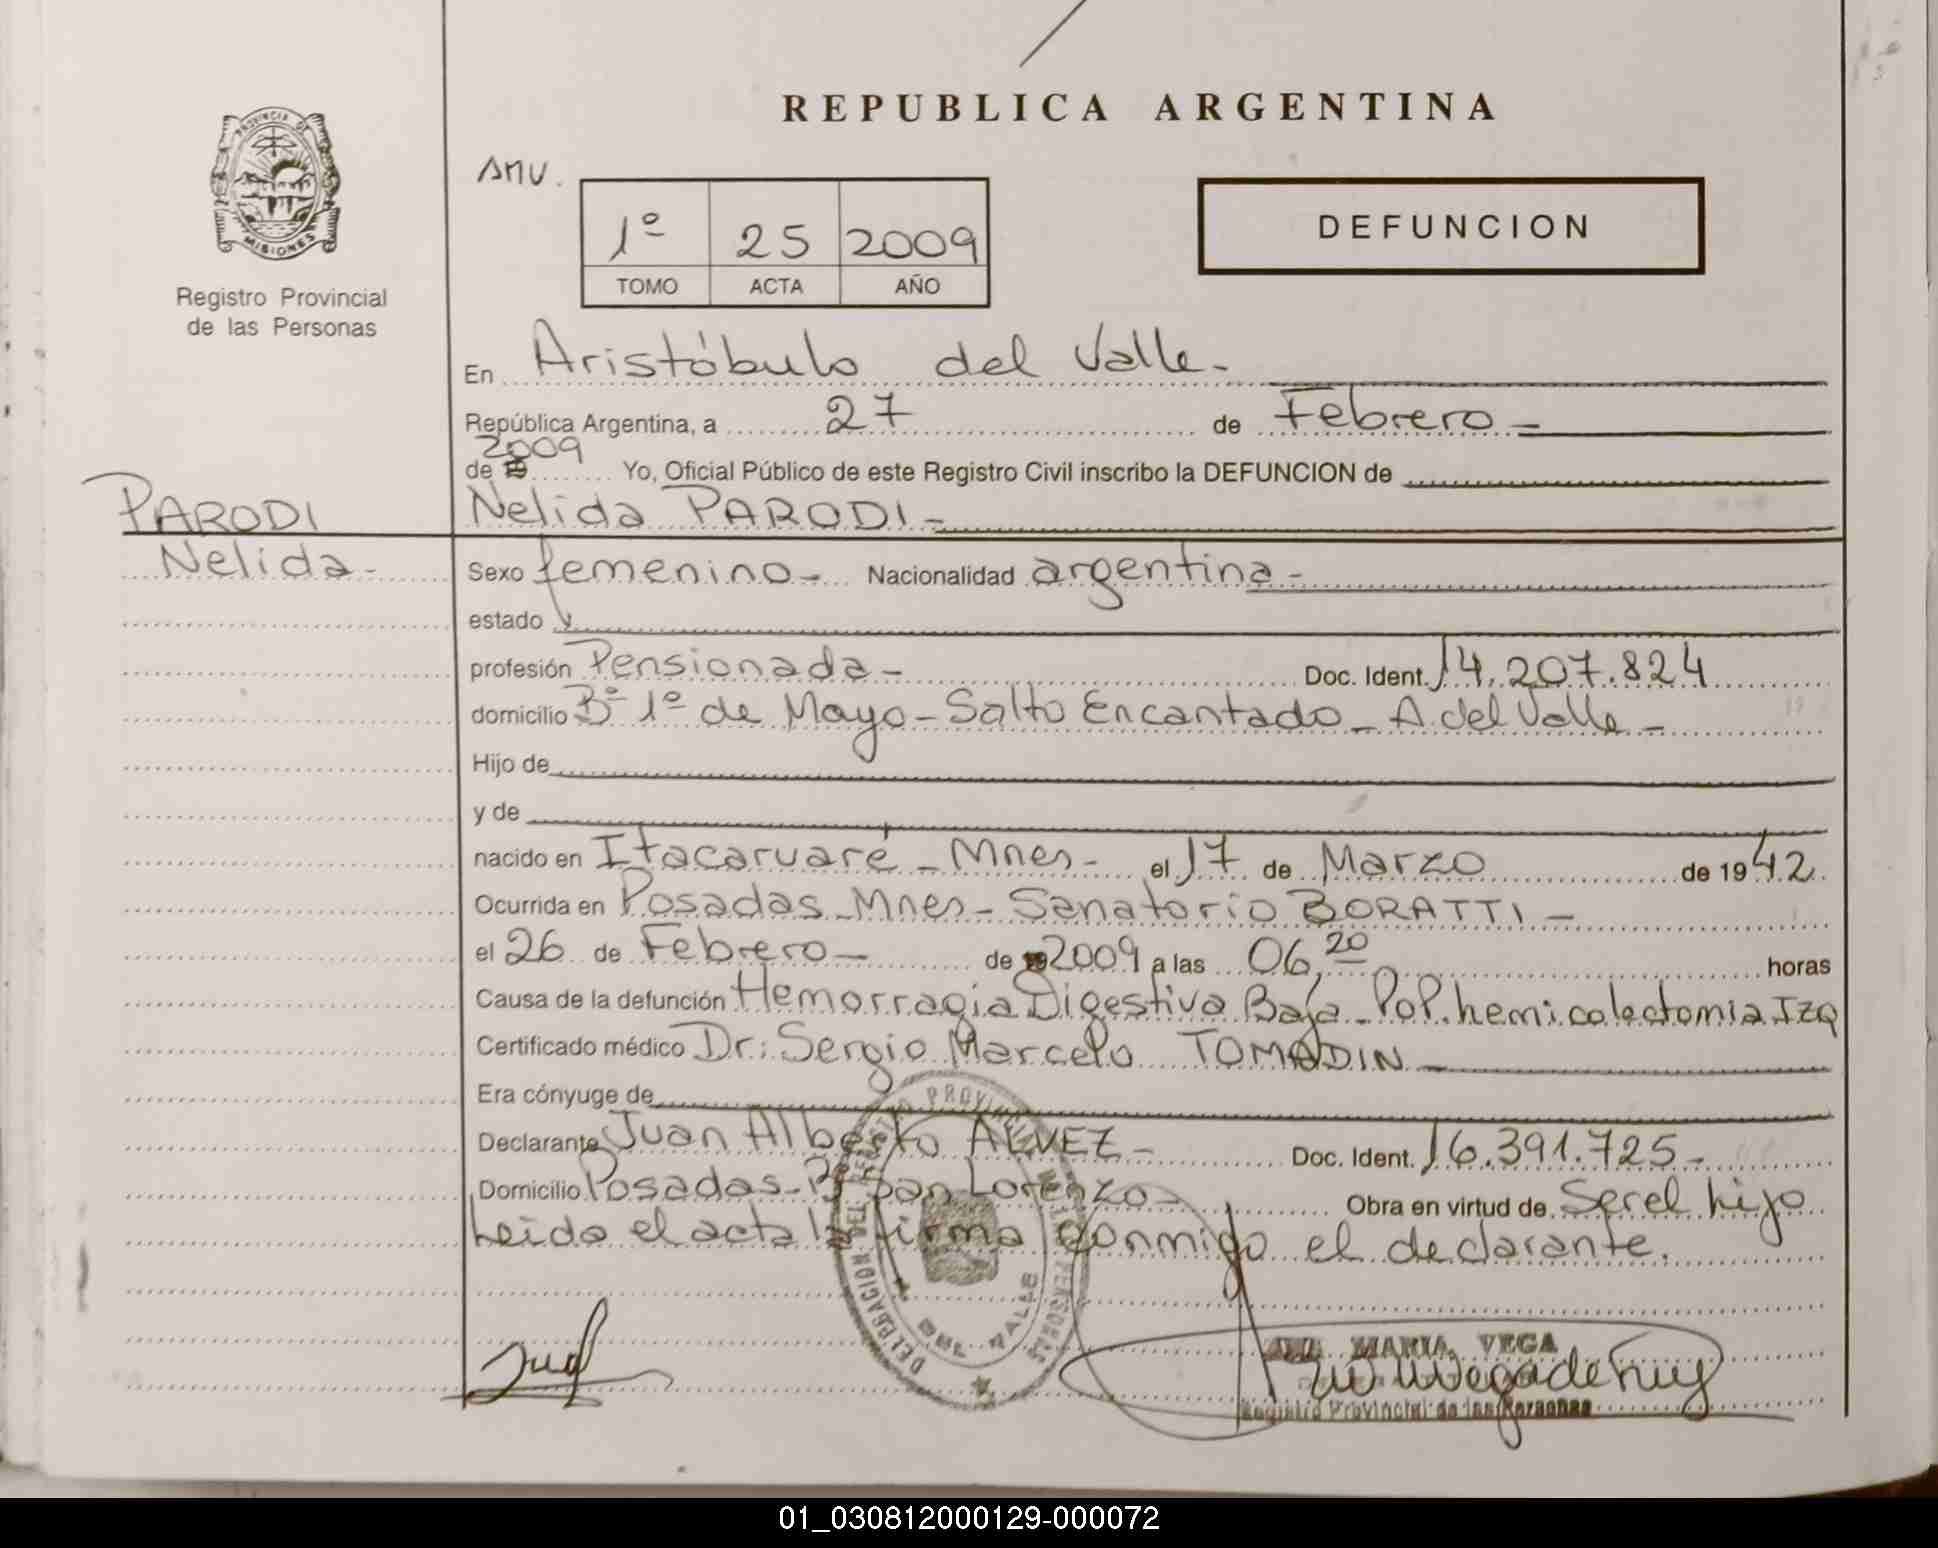 REPUBLICA ARGENTINA
PROVINCIA DE
MISIONES
Registro Provincial
de las Personas
AMV.
1º 25 2009
TOMO ACTA AÑO
DEFUNCION
En Aristóbulo del Valle-
República Argentina, a 27 de Febrero-
2009
de 19 Yo, Oficial Público de este Registro Civil inscribo la DEFUNCION de
PARODI
Nelida-
Nelida PARODI-
Sexo femenino- Nacionalidad argentina-
estado
profesión Pensionada- Doc. Ident. 14.207.824
domicilio Bº 1º de Mayo-Salto Encantado-A.del Valle-
Hijo de
y de
nacido en Itacaruaré-Mnes- el 17 de Marzo de 1942.
Ocurrida en Posadas-Mnes-Sanatorio BORATTI-
el 26 de Febrero- de 2009 a las 06,20 horas
Causa de la defunción Hemorragia Digestiva Baja-Pop.hemicolectomia Izq
Certificado médico Dr: Sergio Marcelo TOMADIN-
Era cónyuge de
Declarante Juan Alberto ALVEZ- Doc. Ident. 16.391.725-
Domicilio Posadas-Bº San Lorenzo- Obra en virtud de Ser el hijo
Leida el acta la firma conmigo el declarante.
DELEGACION DEL REGISTRO PROVINCIAL DE LAS PERSONAS
DEL VALLE
MARIA VEGA
Registro Provincial de las Personas
01_030812000129-000072